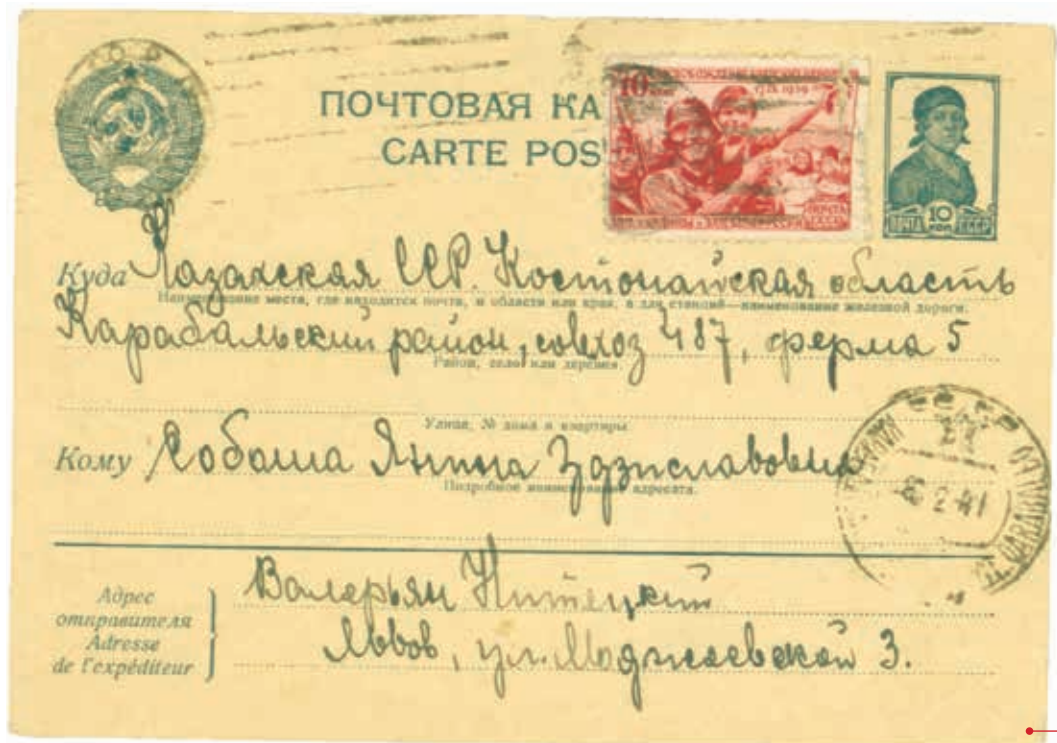 ПОЧТОВАЯ КА
CARTE POS
10
17 IX 1939
ПОЧТА
СССР
ПОЧТА 10 КОП. СССР
Куда Казахская ССР. Костонайская область
Наименование места, где находится почта, и области или края, а для станций—наименование железной дороги.
Карабальский район, совхоз 487, ферма 5
Район, село или деревня.
Улица, № дома и квартиры.
Кому Собоша Янина Здзиславовна
Подробное наименование адресата.
2 41
Адрес
отправителя
Adresse
de l'expéditeur
Валерьян Нитецкий
Львов, ул. Моджеевской 3.